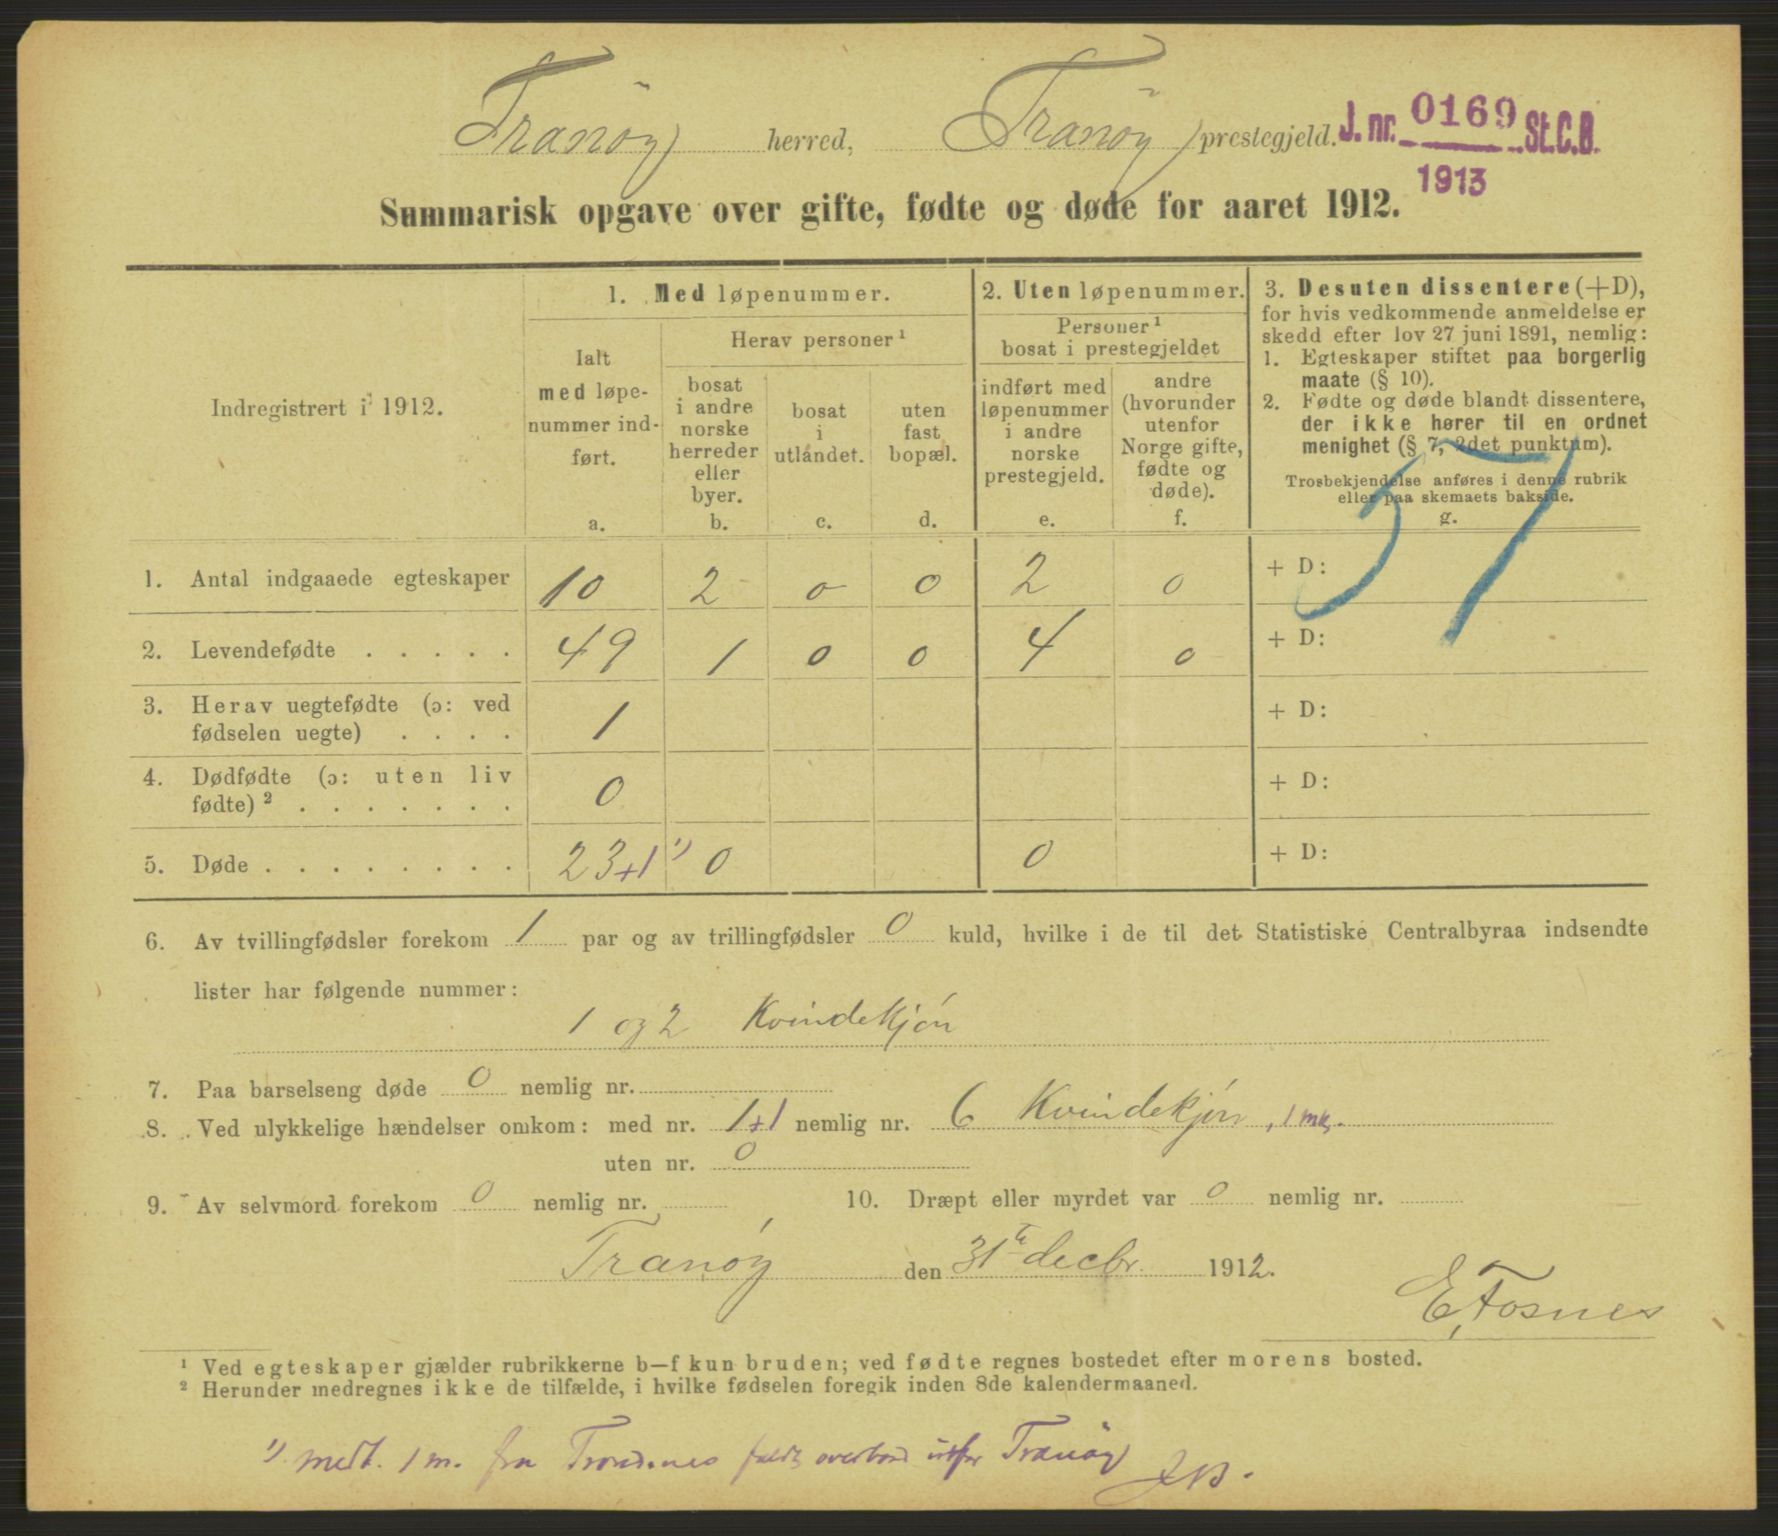 Tranöy herred, Tranöy prestegjeld. J. nr. 0169 St.C.B.
1913
Summarisk opgave over gifte, fødte og døde for aaret 1912.
Indregistrert i 1912.
1. Med løpenummer.
Ialt med løpenummer indført.
a.
Herav personer ¹
bosat i andre norske herreder eller byer.
b.
bosat i utlandet.
c.
uten fast bopæl.
d.
2. Uten løpenummer.
Personer ¹ bosat i prestegjeldet
indført med løpenummer i andre norske prestegjeld.
e.
andre (hvorunder utenfor Norge gifte, fødte og døde).
f.
3. Desuten dissentere (+D),
for hvis vedkommende anmeldelse er
skedd efter lov 27 juni 1891, nemlig:
1. Egteskaper stiftet paa borgerlig
maate (§ 10).
2. Fødte og døde blandt dissentere,
der ikke hører til en ordnet
menighet (§ 7, 2det punktum).
Trosbekjendelse anføres i denne rubrik
eller paa skemaets bakside.
g.
57
1. Antal indgaaede egteskaper 10 2 0 0 2 0 + D:
2. Levendefødte . . . . . 49 1 0 0 4 0 + D:
3. Herav uegtefødte (ɔ: ved
fødselen uegte) . . . . 1 + D:
4. Dødfødte (ɔ: uten liv
fødte) ² . . . . . . . 0 + D:
5. Døde . . . . . . . . 23+1 ¹) 0 0 + D:
6. Av tvillingfødsler forekom 1 par og av trillingfødsler 0 kuld, hvilke i de til det Statistiske Centralbyraa indsendte
lister har følgende nummer:
1 og 2 Kvindekjón
7. Paa barselseng døde 0 nemlig nr.
8. Ved ulykkelige hændelser omkom: med nr. 1+1 nemlig nr. 6 Kvindekjón, 1 mk.
uten nr. 0
9. Av selvmord forekom 0 nemlig nr. 10. Dræpt eller myrdet var 0 nemlig nr.
Tranóy den 31te decbr. 1912.
E. Fosnes
¹ Ved egteskaper gjælder rubrikkerne b—f kun bruden; ved fødte regnes bostedet efter morens bosted.
² Herunder medregnes ikke de tilfælde, i hvilke fødselen foregik inden 8de kalendermaaned.
¹) medt. 1 m. fra Trondenes faldt overbord utfor Tranöy